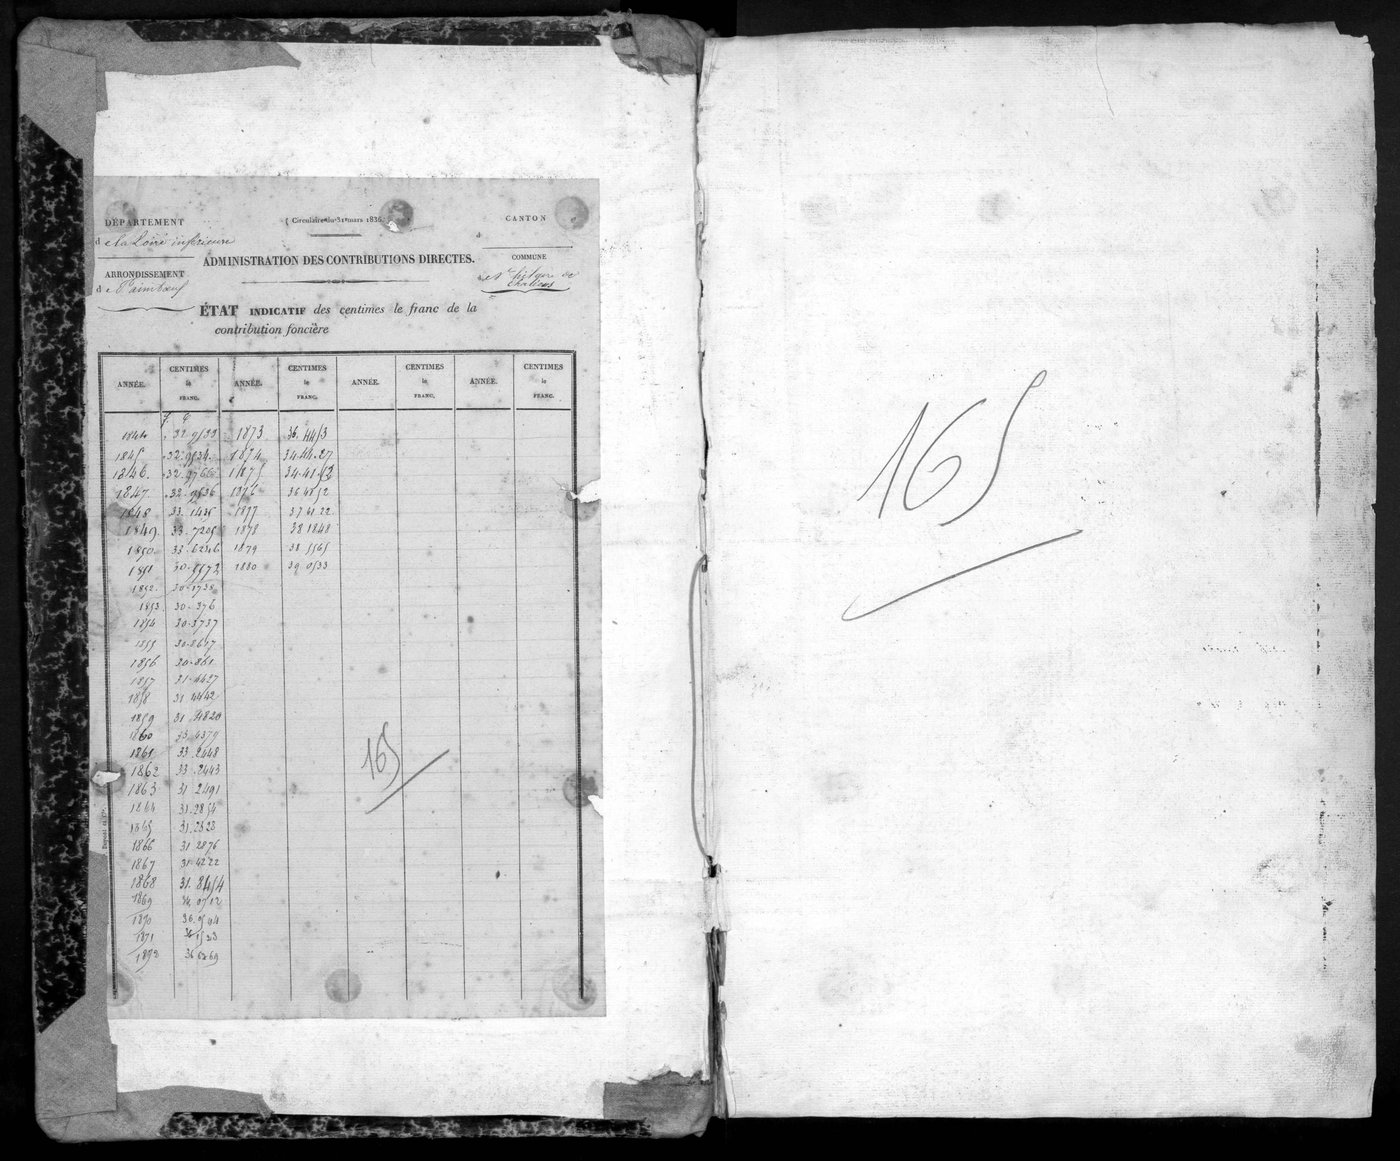 DÉPARTEMENT
d la Loire inférieure
ARRONDISSEMENT
d Paimboeuf
( Circulaire du 31 mars 1836.
ADMINISTRATION DES CONTRIBUTIONS DIRECTES.
CANTON
d
COMMUNE
ÉTAT INDICATIF des centimes le franc de la
contribution foncière
ANNÉE. CENTIMES le FRANC. ANNÉE. CENTIMES le FRANC. ANNÉE. CENTIMES le FRANC. ANNÉE. CENTIMES le FRANC.
f c
1844 32 9533 1873 36. 4453
1845 32. 9534 1874 34.44.27
1846. 32. 9766 1875 34.41.52
1847. 32. 9536 1876 36 4852
1848 33. 1435 1877 37 41 22
1849. 33. 7205 1878 38 1848
1850 33. 6246 1879 38 5565
1851 30. 5572 1880 39 0533
1852. 30. 1738
1853 30. 376
1854 30. 3737
1855 30. 8617
1856 30. 861
1857 31. 4427
1858 31 4442
1859 31. 4820
1860 33. 4379
1861 33. 2448
1862 33. 2443
1863 31 2491
1864 31. 2854
1865 31. 2323
1866 31 2876
1867 31. 4222
1868 31. 8454
1869 34 0512
1870 36. 0544
1871 36 1533
1872 36 6369
165
165